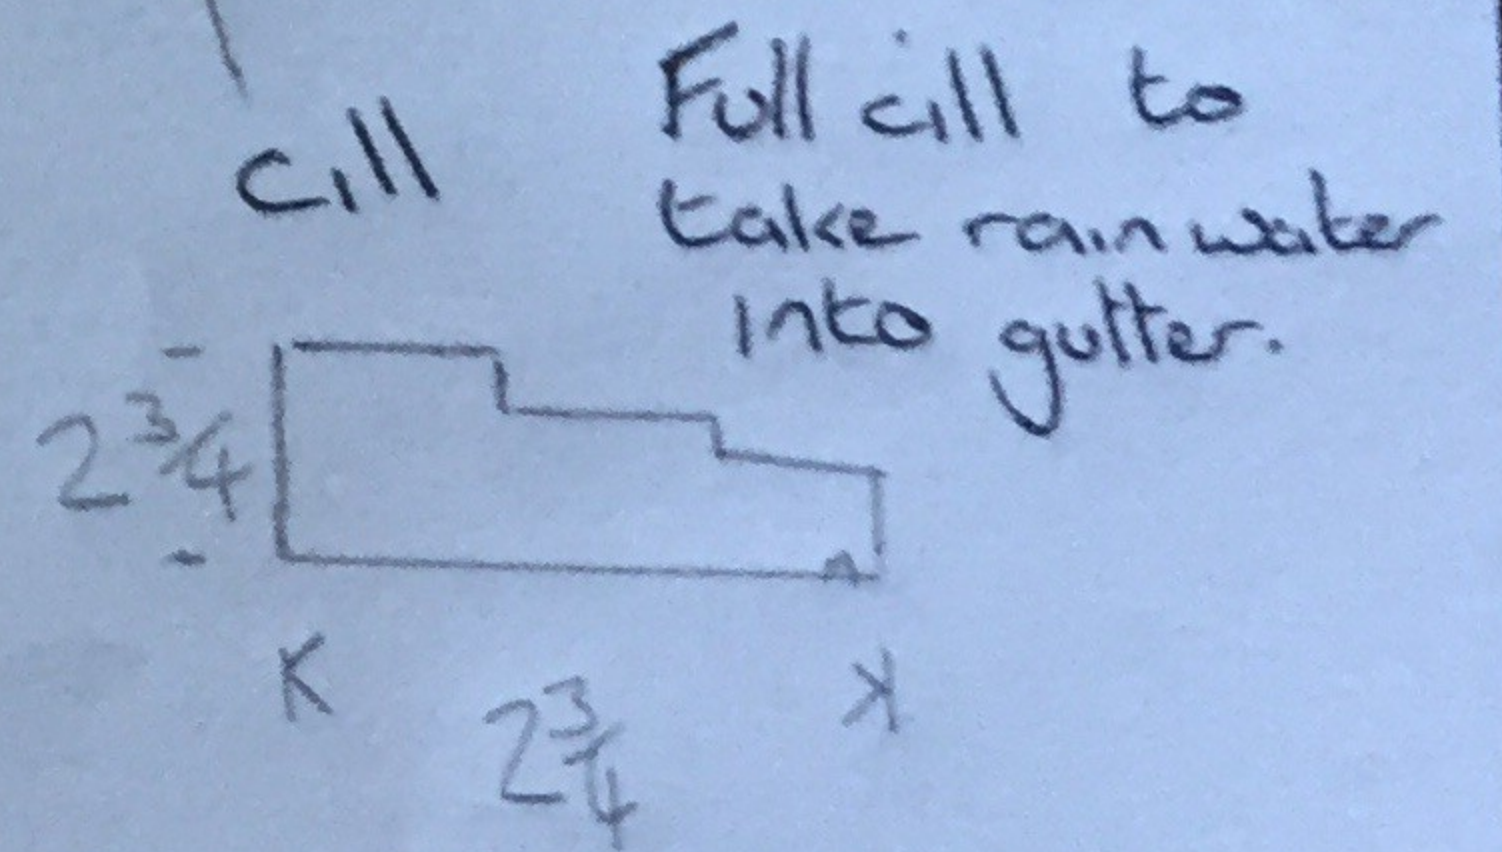 cill
Full cill to
take rain water
into gutter.
2 3/4
2 3/4